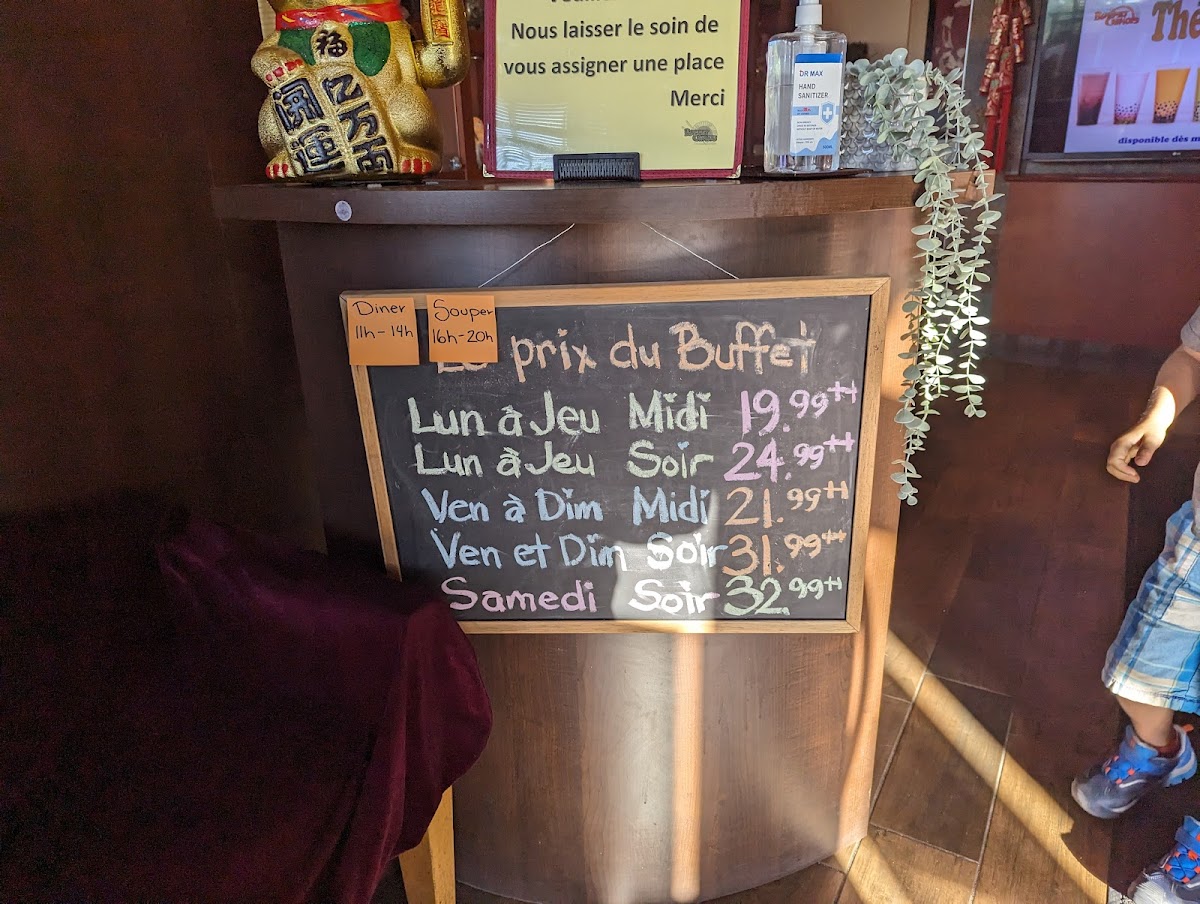 福
開運
Nous laisser le soin de
vous assigner une place
Merci
DR MAX
HAND
SANITIZER
disponible dès m
Diner
11h-14h
Souper
16h-20h
prix du Buffet
Lun à Jeu Midi 19.99+t
Lun à Jeu Soir 24.99+t
Ven à Dim Midi 21.99+t
Ven et Dim Soir 31.99+t
Samedi Soir 32.99+t